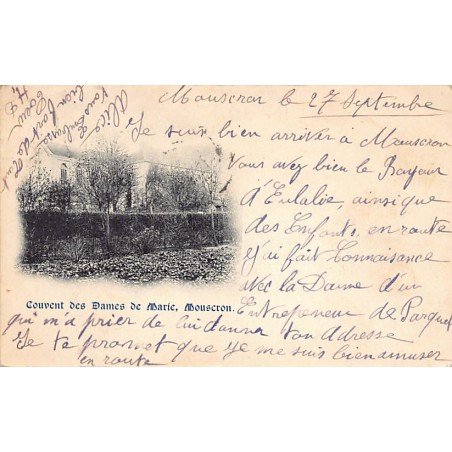 Mouscron le 27 Septembre
Je suis bien arriver à Mouscron
Vous avez bien le Bonjour
d'Eulalie, ainsi que
des Enfants, en route
j'ai fait Connaisance
avec la Dame d'un
Entrepeneur de Parquet
qui m'a prier de lui donner ton Adresse
Je te promet que je me suis bien amuser
en route
Couvent des Dames de Marie, Mouscron.
Alice
Vous
bien
Coeur